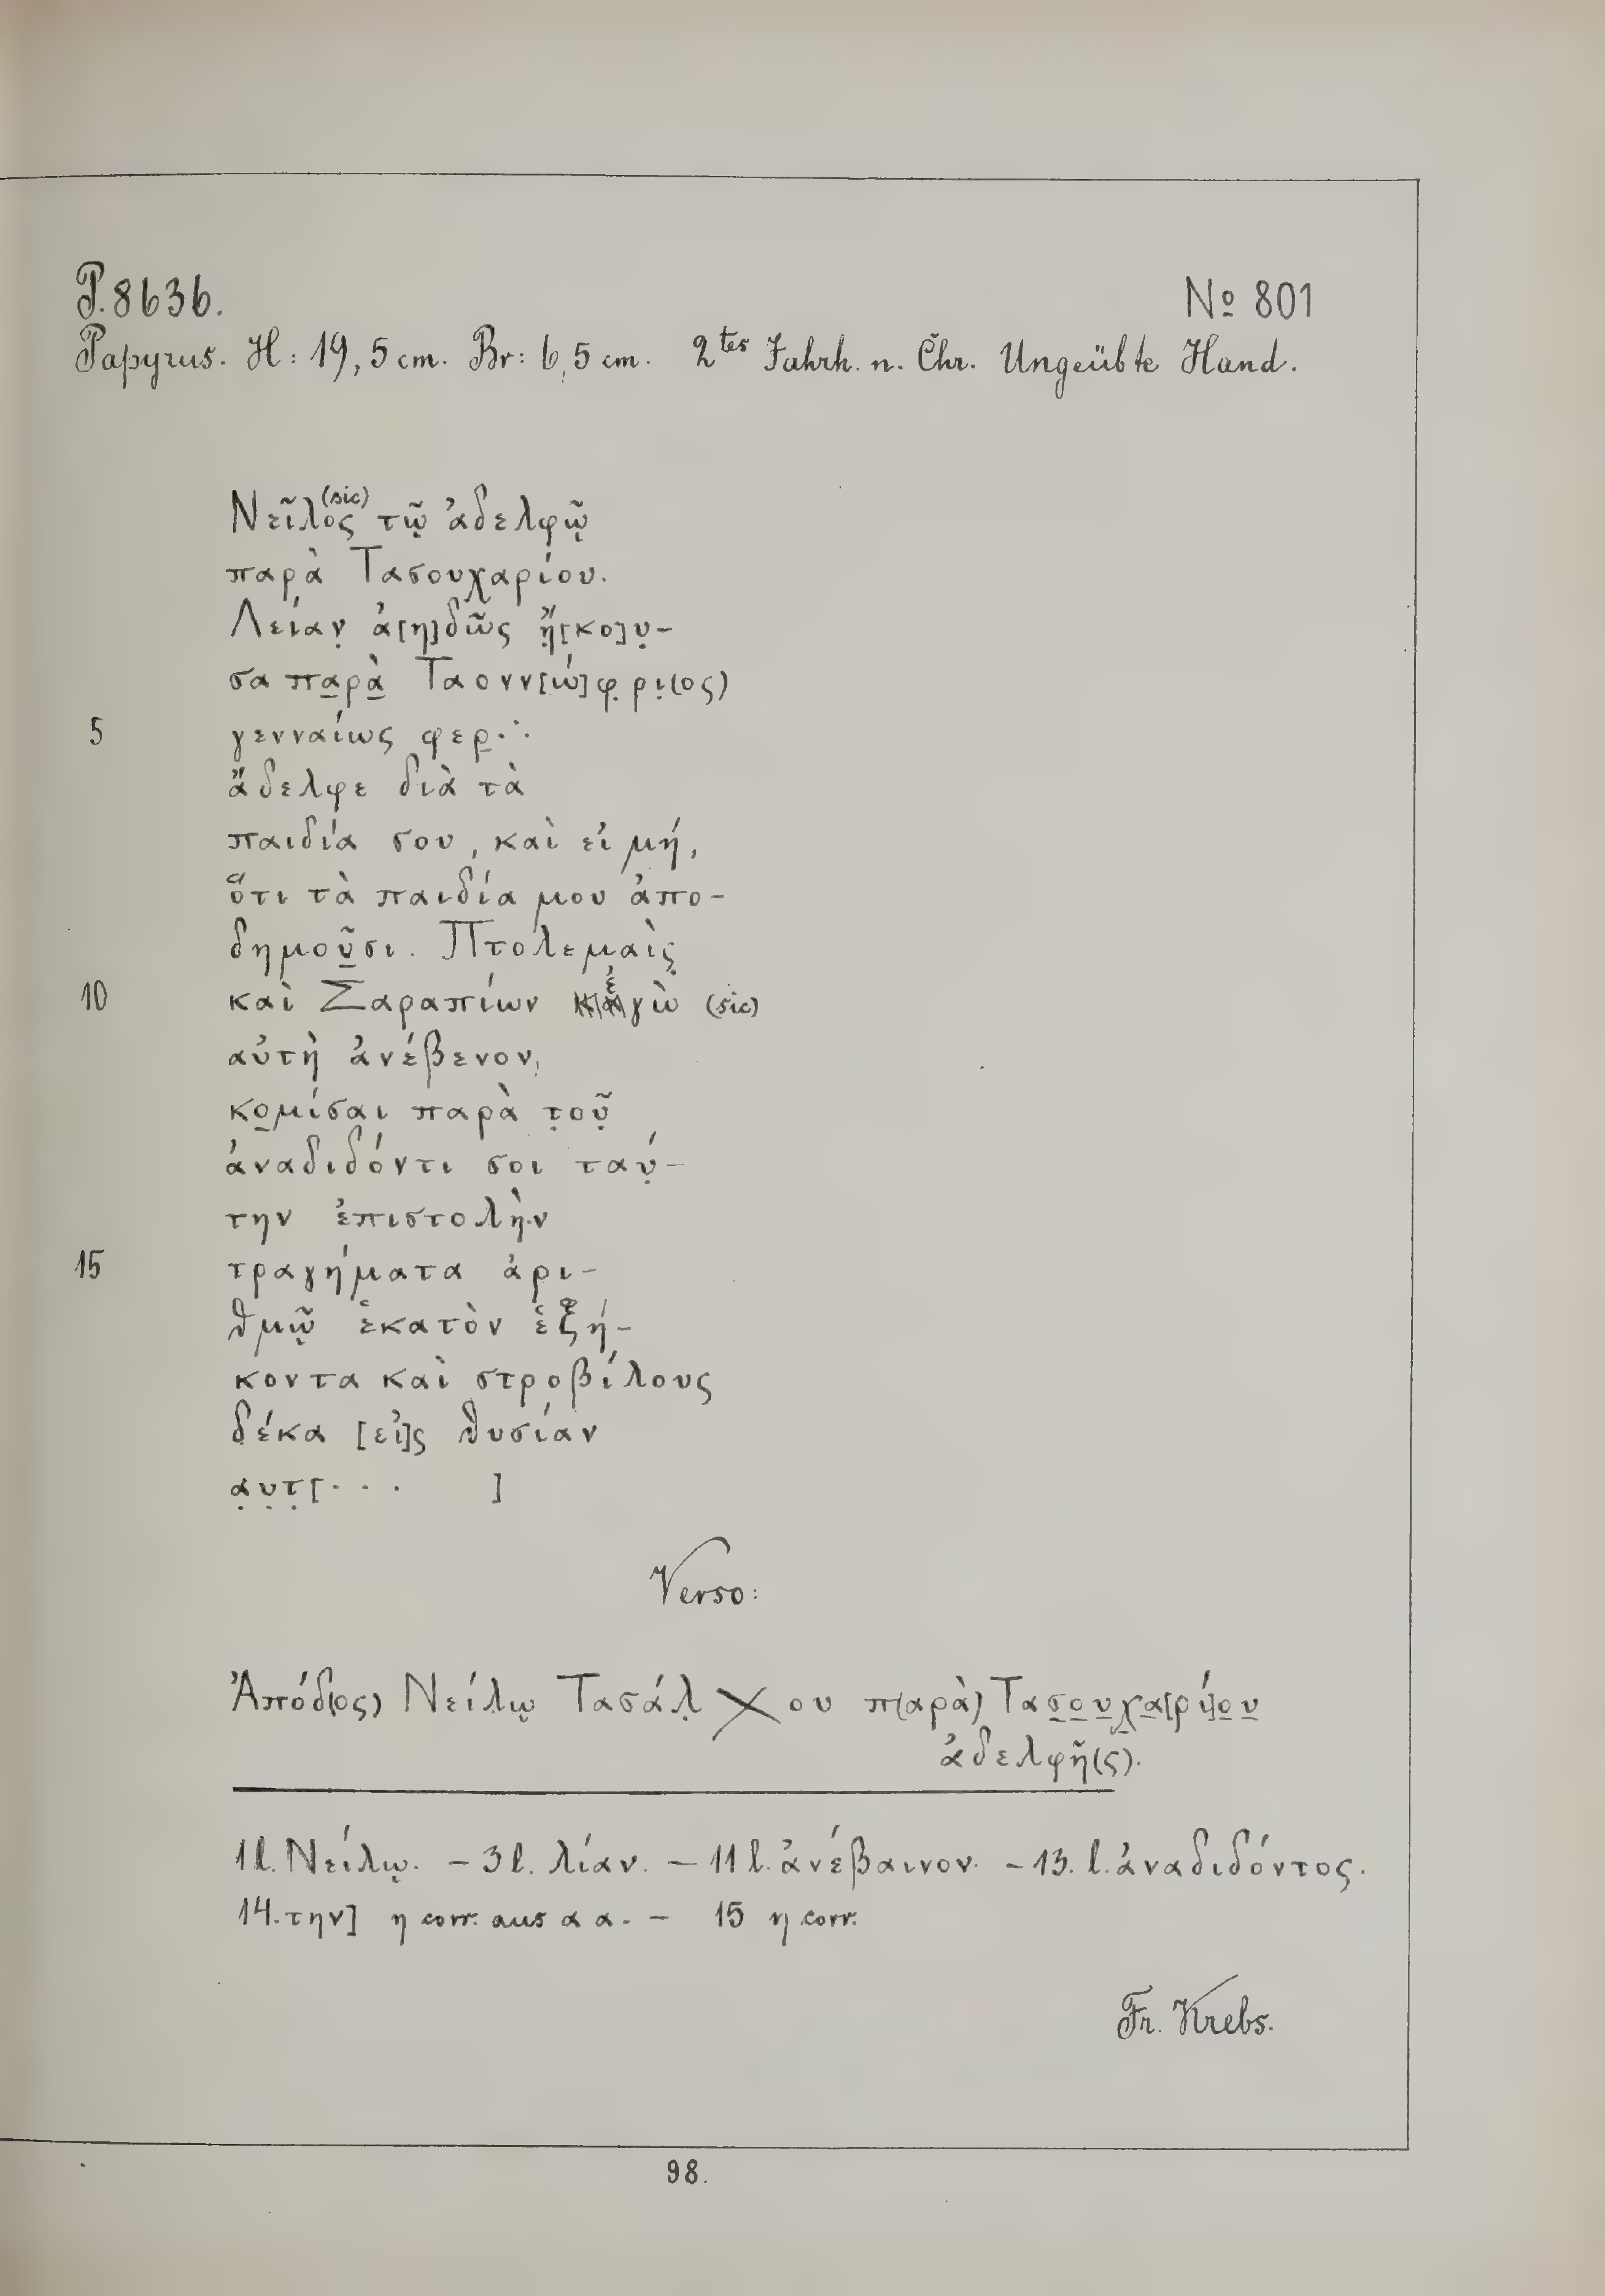 P. 8636. № 801
Papyrus. H: 19,5 cm. Br: 6,5 cm. 2tes Jahrh. n. Chr. Ungeübte Hand.
Νεῖλος (sic) τῷ ἀδελφῷ
παρὰ Τασουχαρίου.
Λείαν̣ ἀ[η]δῶς ἤ̣[κο]υ̣-
σα πα̣ρὰ̣ Ταονν[ώ]φ̣ρι̣(ος)
5 γενναίως φερ̣.∴
ἄδελφε διὰ τὰ
παιδία σου, και εἰ μή,
ὅτι τὰ παιδία μου ἀπο-
δημοῦ̣σι. Πτολεμαὶς̣
10 καὶ Σαραπίων ⟦κἀ⟧ἐγὼ (sic)
αὐτὴ ἀνέβενον,
κο̣μίσαι παρὰ τ̣οῦ̣
ἀναδιδόντι σοι ταύ̣-
την ἐπιστολὴ̣ν
15 τραγήματα ἀρι-
θμῷ ἑκατὸν ἑξή-
κοντα καὶ στροβίλους
δέκα [εἰ]ς θυσίαν
α̣υ̣τ̣[... ]
Verso:
Ἀπόδ(ος) Νείλ̣ῳ Τασάλ̣ X ου π(αρὰ) Τασ̣ο̣υ̣χ̣α̣[ρί]ο̣υ̣
ἀδελφῆ(ς).
1 l. Νείλῳ. – 3 l. λίαν. – 11 l. ἀνέβαινον. – 13. l. ἀναδιδόντος.
14. την] η corr. aus α α. – 15 η corr.
Fr. Krebs.
98.